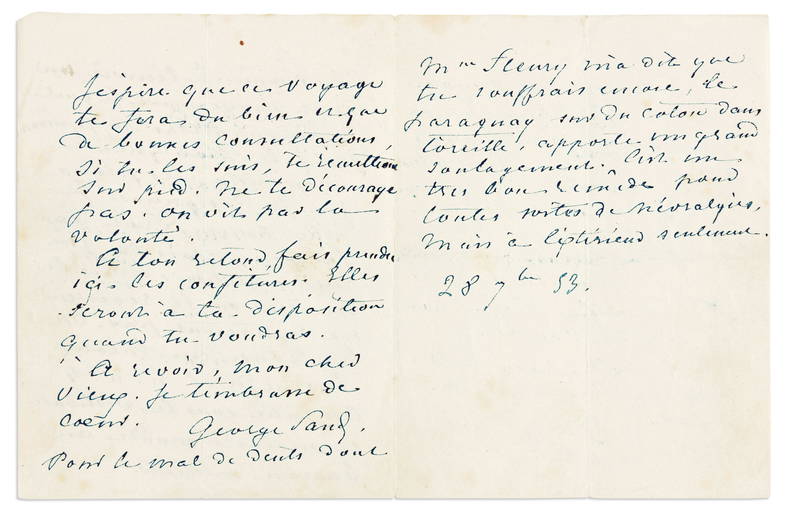 J'espère que ce voyage
te fera du bien et que
de bonnes consultations,
si tu les suis, te remettront
sur pied. Ne te décourage
pas. On vit par la
volonté.
A ton retour, fais prendre
ici les confitures. Elles
seront à ta disposition
quand tu voudras.
A revoir, mon cher
vieux. Je t'embrasse de
cœur.
George Sand.
Pour le mal de dents dont
Mme Fleury m'a dit que
tu souffrais encore, le
paraguay sur du coton dans
l'oreille, apporte un grand
soulagement. C'est un
très bon remède pour
toutes sortes de névralgies,
mais à l'extérieur seulement.
28 7bre 53.